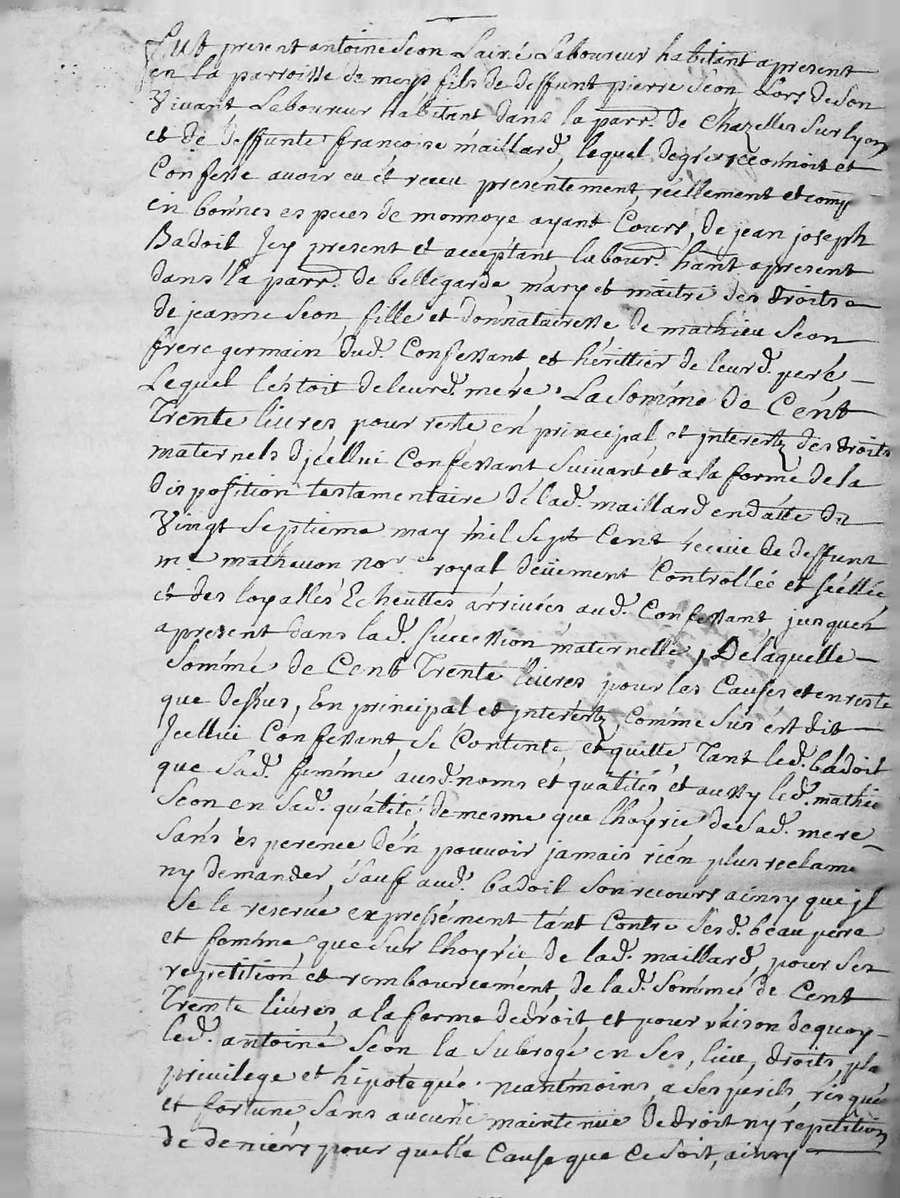 Fut present antoine Seon Lainé Laboureur habitant apresent
en la parroisse de meys fils de deffunt pierre Seon Lors de Son
Vivant Laboureur habitant dans la parr. de Chazelles sur lyon
et de deffunte francoise maillard, lequel degré reconnoit et
Confesse avoir eu et receu presentement, reellement et comp
en bonnes especes de monnoye ayant Cours, de jean joseph
Badoil Jcy present et acceptant labour. hant apresent
dans la parr. de bellegarde mary et maitre des droits
de jeanne Seon fille et donnataresse de mathieu Seon
frere germain dud. Confessant et hérittier de leurd. pere
Lequel Léstoit de leurd. mere. La Somme de Cent
Trente livres pour reste en principal et jnterests des droits
maternels djcellui Confessant Suivant et a la forme de la
disposition testamentaire de lad. maillard en datte du
Vingt Septieme may mil Sept Cent receue de deffunt
me mathevon nore royal deüement Controllée et scéllée
et des loyalles Echeuttes arrivées aud. Confessant jusques
apresent dans lad. Succession maternelle, De laquelle
Somme de Cent Trente livres pour les Causes et en reste
que dessus, En principal et jnterests Comme Sus est dit
Jcellui Confessant, Se Contente et quitte Tant led. badoil
que Sad. femme ausd. noms et qualités et aussy led. mathie
Seon en Sad. qualité demesme que lhoyrie de Sad. mere
Sans esperence dén pouvoir jamais rien plus reclame
ny demander, Sauf aud. badoil Son recours ainsy que jl
Se le reserve expressément tant Contre Sesd. beau pere
et femme que Sur lhoyrie de lad. maillard pour Ser
repetition et rembourcement de lad. Somme de Cent
Trente livres a la forme dedroit et pour raison dequoy
led. antoine Seon la Subrogé en Ses, lieu, droits, pla
privilege et hipoteque neantmoins a Ses perils, risque
et fortune Sans aucune maintenue de droit ny repetition
de deniers pour quelle Cause que Ce Soit, ainsy